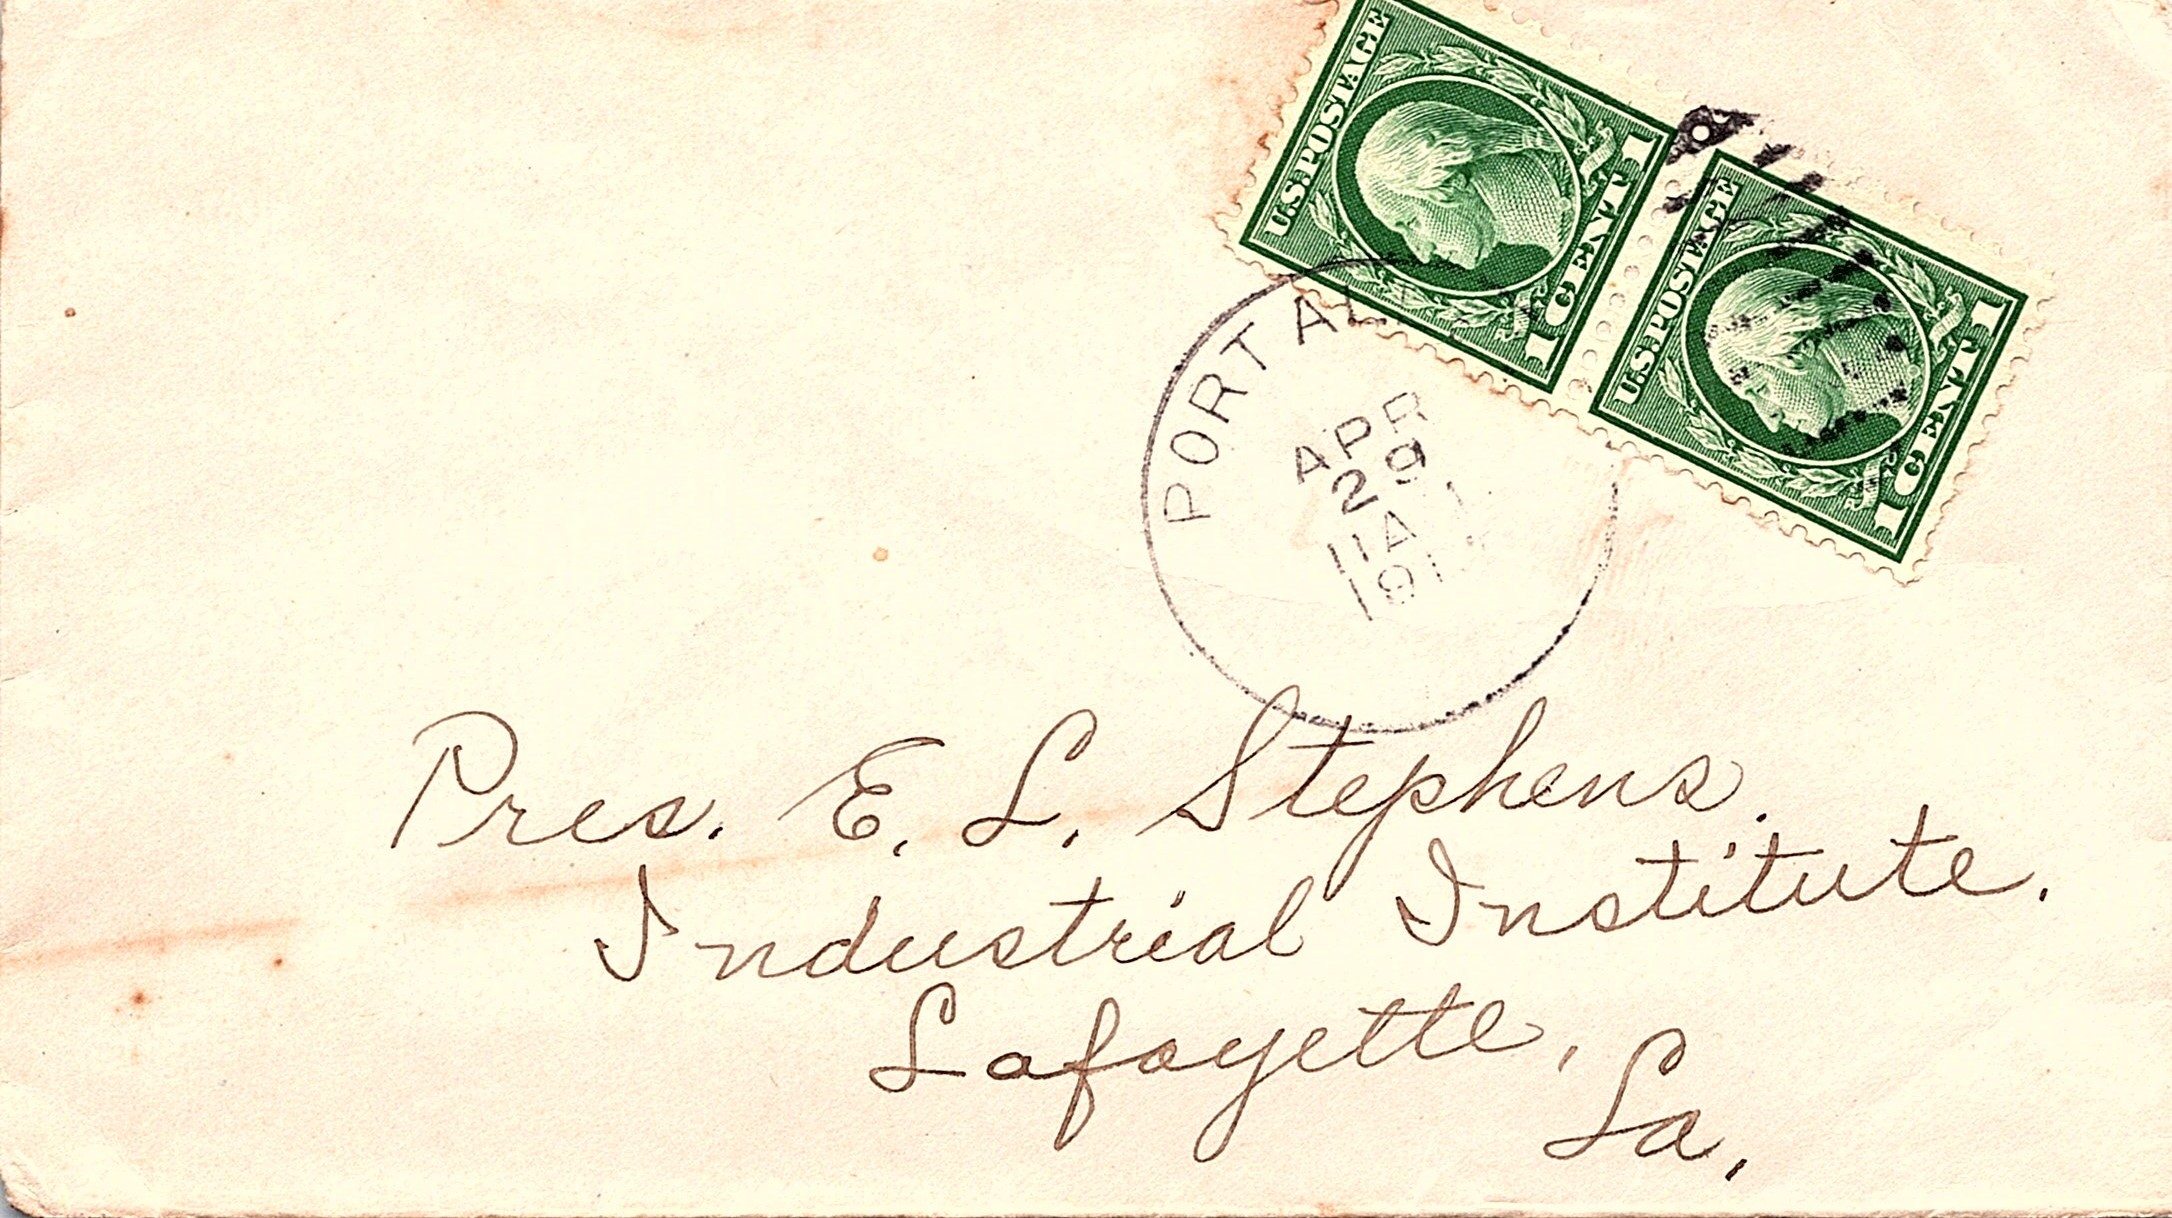 U.S. POSTAGE
1 CENT 1
U.S. POSTAGE
1 CENT 1
PORT
APR
29
11 A
Pres. E. L. Stephens.
Industrial Institute.
Lafayette,
La.